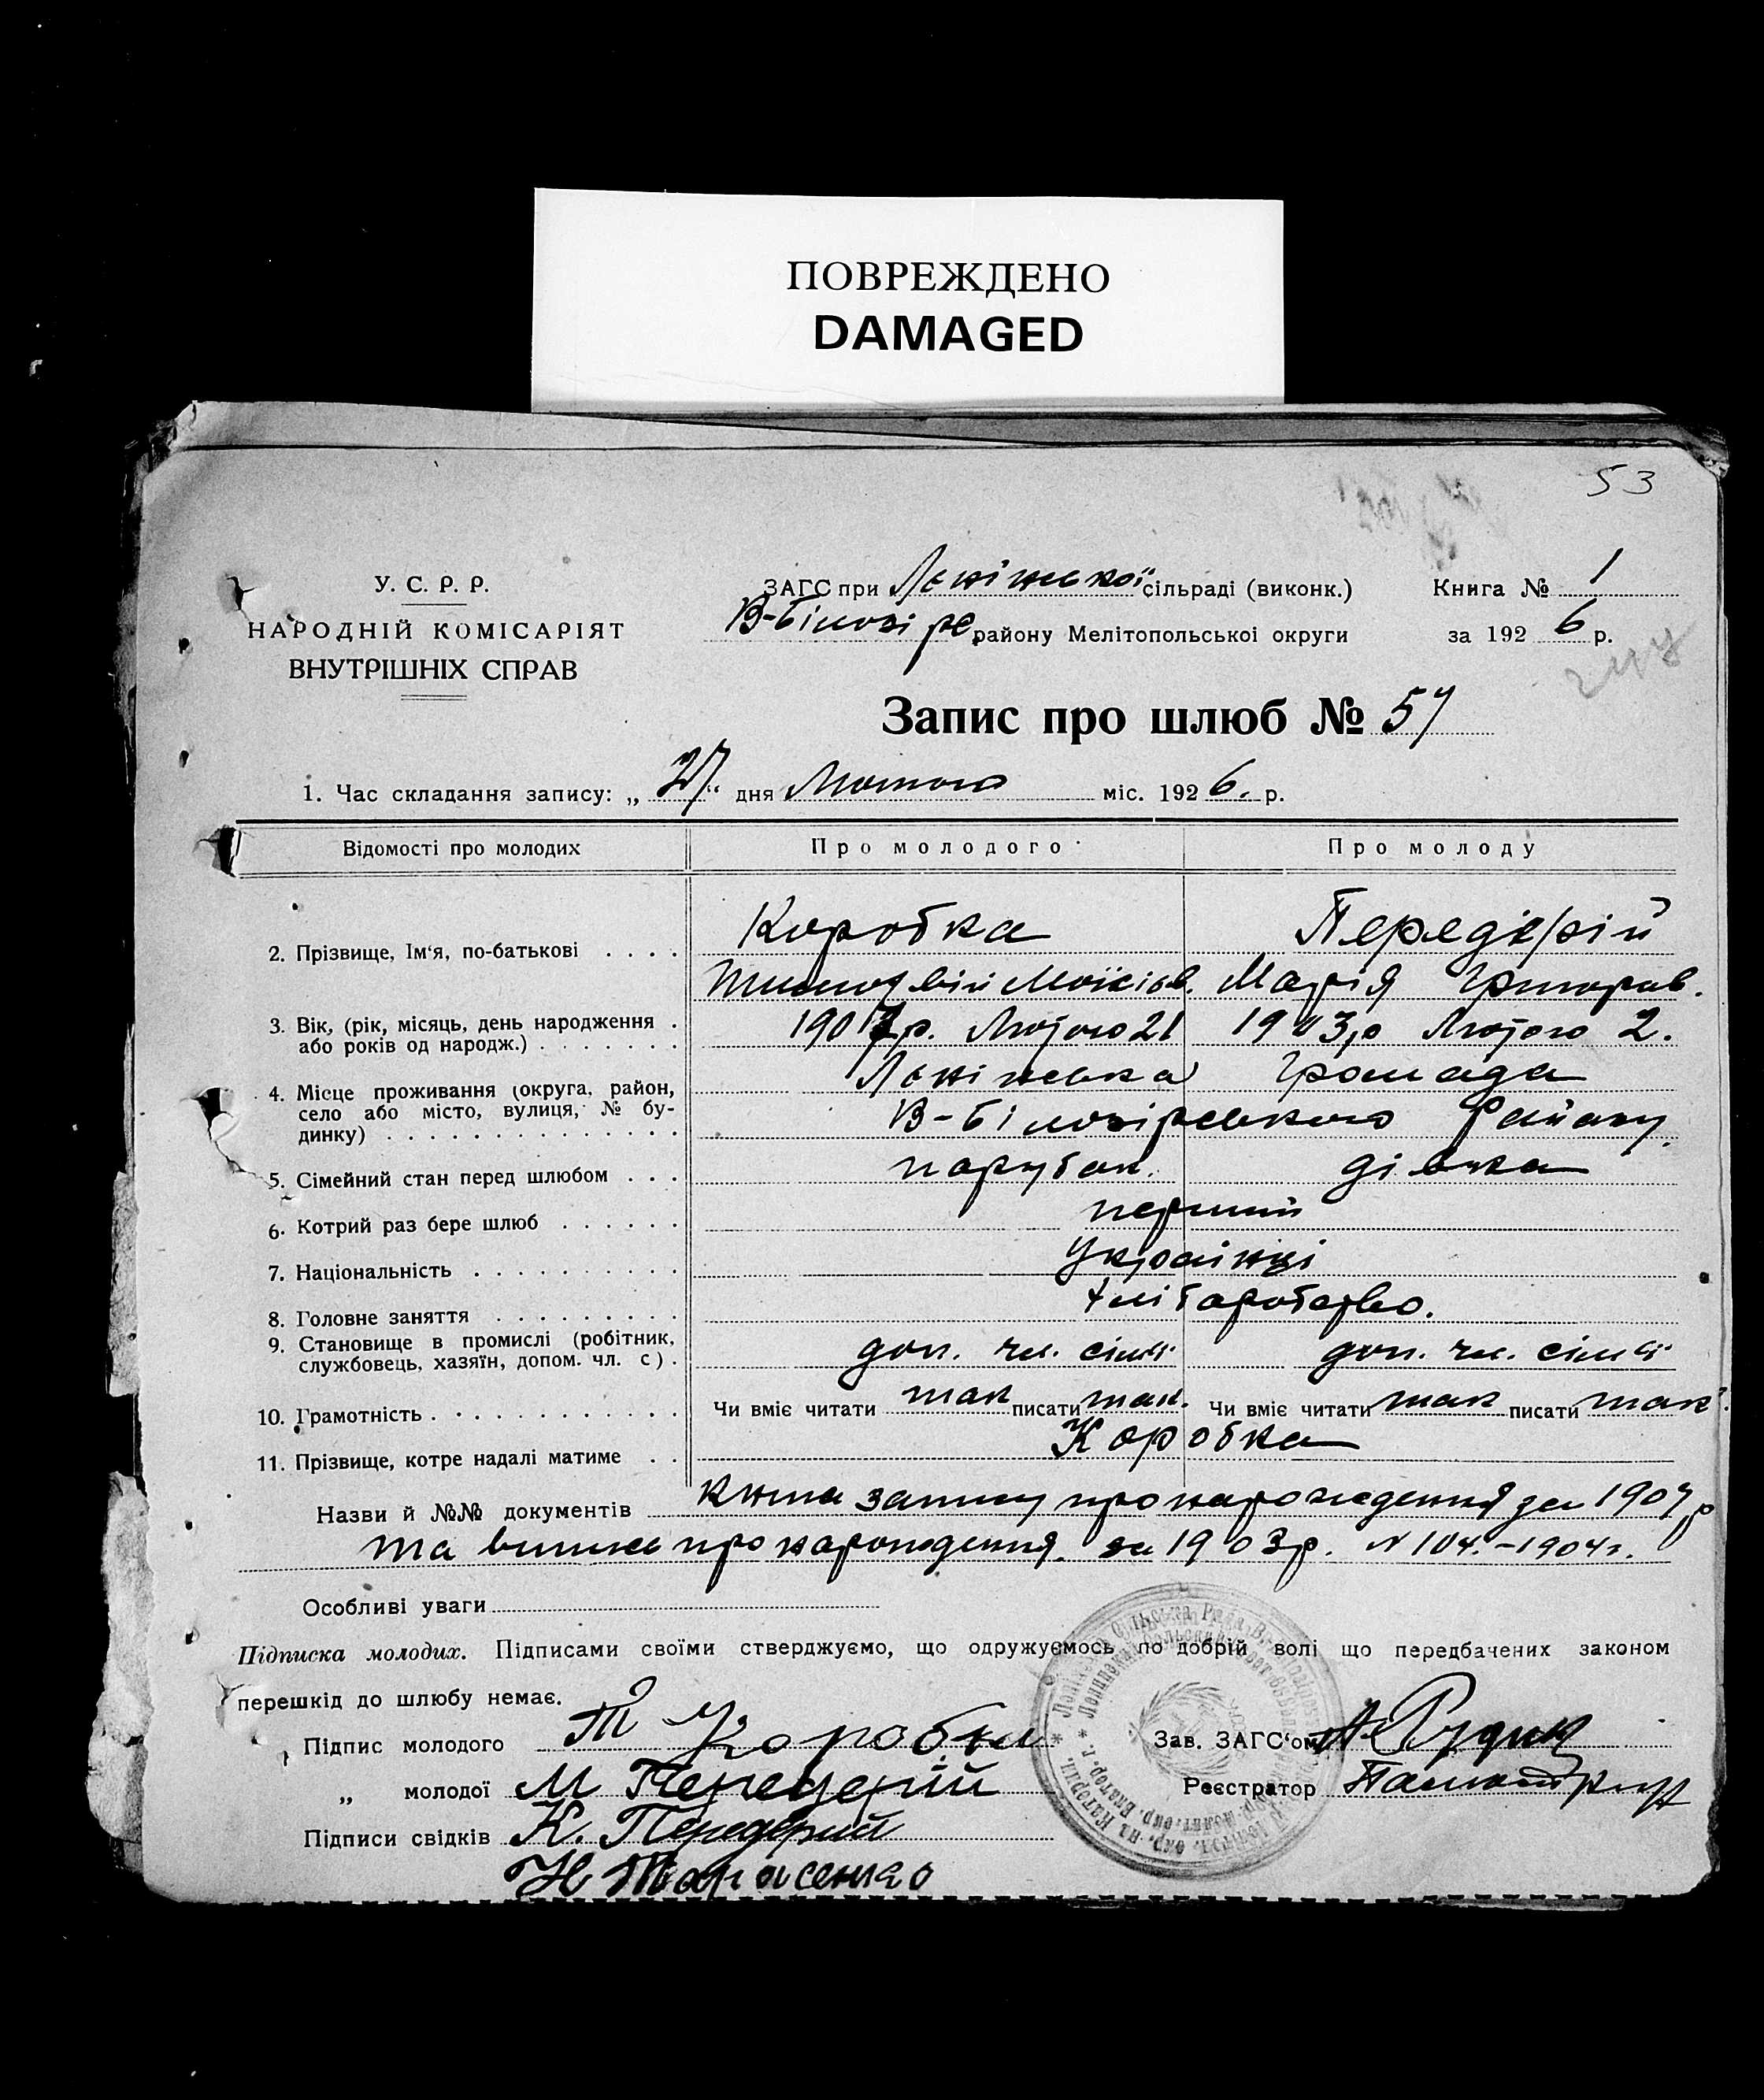 ПОВРЕЖДЕНО
DAMAGED
53
У. С. Р. Р.
НАРОДНІЙ КОМІСАРІЯТ
ВНУТРІШНІХ СПРАВ
ЗАГС при Ленінської сільраді (виконк.)
В-Білозірс. району Мелітопольської округи
Книга № 1
за 1926 р.
Запис про шлюб № 57
1. Час складання запису: „27“ дня Лютого міс. 1926. р.
Відомості про молодих Про молодого Про молоду
Коробка Передерій
2. Прізвище, Ім‘я, по-батькові . . . .
Тимофвій Моїсіев. Марія Григорів.
3. Вік, (рік, місяць, день народження . 1907р. Лютого 21 1903р Лютого 2.
або років од народж.) . . . . . . .
4. Місце проживання (округа, район, Ленінська Громада
село або місто, вулиця, № бу- В-Білозірського Району.
динку) . . . . . . . . . . . . . .
5. Сімейний стан перед шлюбом . . . парубок. дівка
6. Котрий раз бере шлюб . . . . . . перший
7. Національність . . . . . . . . . . Українці
8. Головне заняття . . . . . . . . . хліборобство.
9. Становище в промислі (робітник,
службовець, хазяїн, допом. чл. с) . доп. чл. сімї доп. чл. сімї
10. Грамотність . . . . . . . . . . . Чи вміє читати так писати так. Чи вміє читати так писати так.
11. Прізвище, котре надалі матиме . . Коробка
Назви й №№ документів книга запису про народження за 1907р
та виписка про народження за 1903р. N 104.-1904г.
Особливі уваги
Підписка молодих. Підписами своїми стверджуємо, що одружуємось по добрій волі що передбачених законом
перешкід до шлюбу немає.
Підпис молодого Т Коробка
Зав. ЗАГС‘ом А Рудик
„ молодої М Передерій
Реєстратор
Підписи свідків К. Передерий
Н Тарасенко